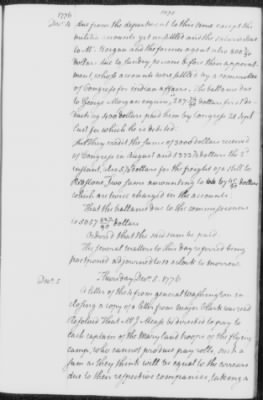 1776
Decr. 4 due from the department to this time except the
militia accounts yet unsettled and the salaries due
to Mr. Morgan and the former agent also 800
dollars due to sundry persons before their appoint-
ment, whose accounts were settled by a committee
of Congress for indian affairs. The ballance due
to George Morgan esquire, 287 dollars for 1 de-
ducting 400 dollars paid him by Congress 20 Sept
last for which he is debited.
And they credit the sums of 3000 dollars received
of Congress in August and 1373 dollars the 3d
instant, also 5 1/3 dollars for the freight of a still to
dollars
which are twice charged in the accounts.
That the ballance due to the commissioners
is 5057 dollars
Ordered that the said sum be paid.
The several matters to this day referred being
postponed adjourned to 10 oClock to morrow.
Thursday Decr. 5. 1776
Decr. 5 A letter of the 4 from general Washington in-
closing a copy of a letter from major Clark was read
Resolved That Mr. J. Mease be directed to pay to
each captain of the Maryland troops of the flying
camp, who cannot produce pay rolls, such a
sum as they think will be equal to the arrears
due to their respective companies, taking a